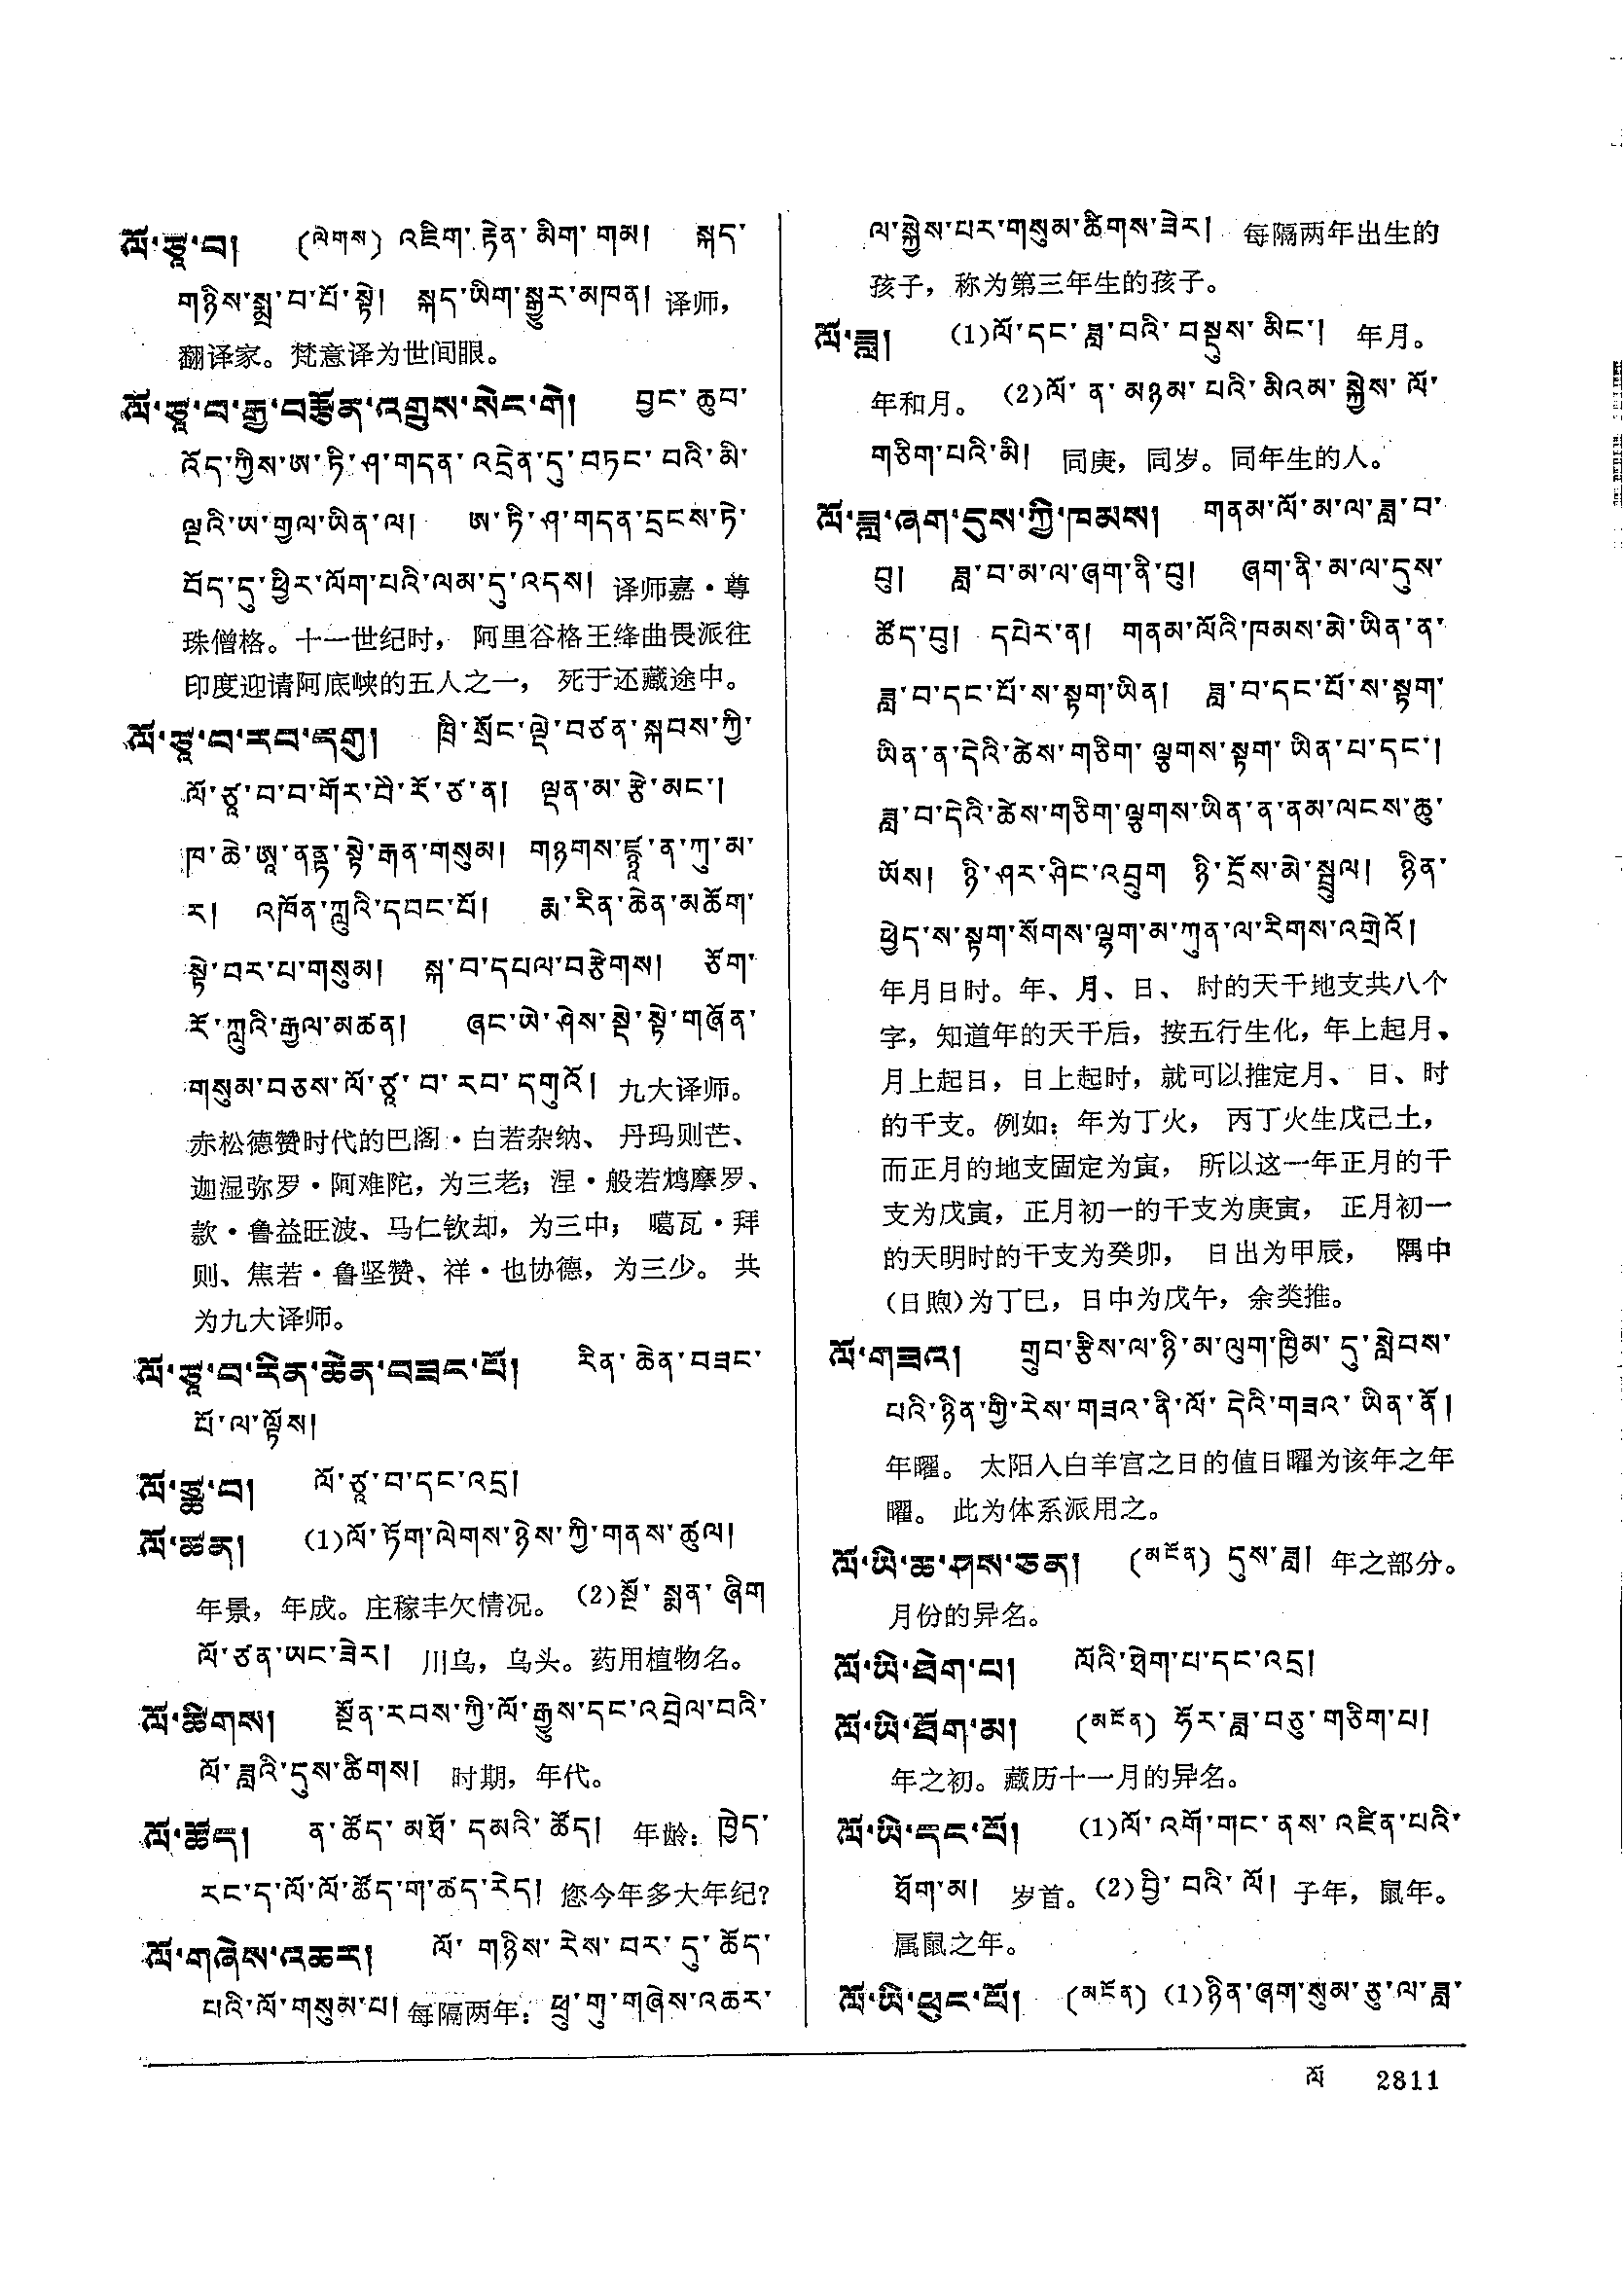 ལོ་ཙཱ་བ། (ལེགས) འཇིག་རྟེན་མིག་གམ། སྐད་
གཉིས་སྨྲ་བ་པོ་སྟེ། སྐད་ཡིག་སྒྱུར་མཁན། 译师，
翻译家。梵意译为世间眼。
ལོ་ཙཱ་བ་རྒྱ་བརྩོན་འགྲུས་སེང་གེ། བྱང་ཆུབ་
འོད་ཀྱིས་ཨ་ཏི་ཤ་གདན་འདྲེན་དུ་བཏང་བའི་མི་
ལྔའི་ཨ་གྱལ་ཡིན་ལ། ཨ་ཏི་ཤ་གདན་དྲངས་ཏེ་
བོད་དུ་ཕྱིར་ལོག་པའི་ལམ་དུ་འདས། 译师嘉·尊
珠僧格。十一世纪时， 阿里谷格王绛曲畏派往
印度迎请阿底峡的五人之一， 死于还藏途中。
ལོ་ཙཱ་བ་རབ་དགུ། ཁྲི་སྲོང་ལྡེ་བཙན་སྐབས་ཀྱི་
ལོ་ཙཱ་བ་བ་གོར་བེ་རོ་ཙ་ན། ལྡན་མ་རྩེ་མང་།
ཁ་ཆེ་ཨཱ་ནནྟ་སྟེ་རྒན་གསུམ། གཉགས་ཛྙཱ་ན་ཀུ་མ་
ར། འཁོན་ཀླུའི་དབང་པོ། རྨ་རིན་ཆེན་མཆོག་
སྟེ་བར་པ་གསུམ། སྐ་བ་དཔལ་བརྩེགས། ཅོག་
རོ་ཀླུའི་རྒྱལ་མཚན། ཞང་ཡེ་ཤེས་སྡེ་སྟེ་གཞོན་
གསུམ་བཅས་ལོ་ཙཱ་བ་རབ་དགུའོ། 九大译师。
赤松德赞时代的巴阁·白若杂纳、丹玛则芒、
迦湿弥罗·阿难陀，为三老；涅·般若鸠摩罗、
款·鲁益旺波、马仁钦却，为三中； 噶瓦·拜
则、焦若·鲁坚赞、祥·也协德，为三少。 共
为九大译师。
ལོ་ཙཱ་བ་རིན་ཆེན་བཟང་པོ། རིན་ཆེན་བཟང་
པོ་ལ་ལྟོས།
ལོ་ཙྪ་བ། ལོ་ཙཱ་བ་དང་འདྲ།
ལོ་ཚན། (1)ལོ་ཏོག་ལེགས་ཉེས་ཀྱི་གནས་ཚུལ།
年景，年成。庄稼丰欠情况。 (2)སྔོ་སྨན་ཞིག
ལོ་ཙན་ཡང་ཟེར། 川乌，乌头。药用植物名。
ལོ་ཚིགས། སྔོན་རབས་ཀྱི་ལོ་རྒྱུས་དང་འབྲེལ་བའི་
ལོ་ཟླའི་དུས་ཚིགས། 时期，年代。
ལོ་ཚོད། ན་ཚོད་མཐོ་དམའི་ཚོད། 年龄：ཁྱེད་
རང་ད་ལོ་ལོ་ཚོད་ག་ཚད་རེད། 您今年多大年纪?
ལོ་གཞེས་འཆར། ལོ་གཉིས་རེས་བར་དུ་ཚོད་
པའི་ལོ་གསུམ་པ། 每隔两年：ཕྲུ་གུ་གཞེས་འཆར་
ལ་སྐྱེས་པར་གསུམ་ཚིགས་ཟེར། 每隔两年出生的
孩子，称为第三年生的孩子。
ལོ་ཟླ། (1)ལོ་དང་ཟླ་བའི་བསྡུས་མིང་། 年月。
年和月。 (2)ལོ་ན་མཉམ་པའི་མིའམ་སྐྱེས་ལོ་
གཅིག་པའི་མི། 同庚，同岁。同年生的人。
ལོ་ཟླ་ཞག་དུས་ཀྱི་ཁམས། གནམ་ལོ་མ་ལ་ཟླ་བ་
བུ། ཟླ་བ་མ་ལ་ཞག་ནི་བུ། ཞག་ནི་མ་ལ་དུས་
ཚོད་བུ། དཔེར་ན། གནམ་ལོའི་ཁམས་མེ་ཡིན་ན་
ཟླ་བ་དང་པོ་ས་སྟག་ཡིན། ཟླ་བ་དང་པོ་ས་སྟག་
ཡིན་ན་དེའི་ཚེས་གཅིག་ལྕགས་སྟག་ཡིན་པ་དང་།
ཟླ་བ་དེའི་ཚེས་གཅིག་ལྕགས་ཡིན་ན་ནམ་ལངས་ཆུ་
ཡོས། ཉི་ཤར་ཤིང་འབྲུག ཉི་དྲོས་མེ་སྦྲུལ། ཉིན་
ཕྱེད་ས་སྟག་སོགས་ལྷག་མ་ཀུན་ལ་རིགས་འགྲེའོ།
年月日时。年、月、日、 时的天干地支共八个
字，知道年的天干后，按五行生化，年上起月、
月上起日，日上起时，就可以推定月、 日、时
的干支。例如：年为丁火， 丙丁火生戊己土，
而正月的地支固定为寅， 所以这一年正月的干
支为戊寅，正月初一的干支为庚寅， 正月初一
的天明时的干支为癸卯， 日出为甲辰， 隅中
(日煦)为丁巳，日中为戊午，余类推。
ལོ་གཟའ། གྲུབ་རྩིས་ལ་ཉི་མ་ལུག་ཁྱིམ་དུ་སླེབས་
པའི་ཉིན་གྱི་རེས་གཟའ་ནི་ལོ་དེའི་གཟའ་ཡིན་ནོ།
年曜。 太阳入白羊宫之日的值日曜为该年之年
曜。 此为体系派用之。
ལོ་ཡི་ཆ་ཤས་ཅན། (མངོན) དུས་ཟླ། 年之部分。
月份的异名。
ལོ་ཡི་ཐེག་པ། ལོའི་ཐེག་པ་དང་འདྲ།
ལོ་ཡི་ཐོག་མ། (མངོན) ཧོར་ཟླ་བཅུ་གཅིག་པ།
年之初。藏历十一月的异名。
ལོ་ཡི་དང་པོ། (1)ལོ་འགོ་གང་ནས་འཛིན་པའི་
ཐོག་མ། 岁首。(2)བྱི་བའི་ལོ། 子年，鼠年。
属鼠之年。
ལོ་ཡི་ཕུང་པོ། (མངོན) (1)ཉིན་ཞག་སུམ་ཅུ་ལ་ཟླ་
ལོ 2811